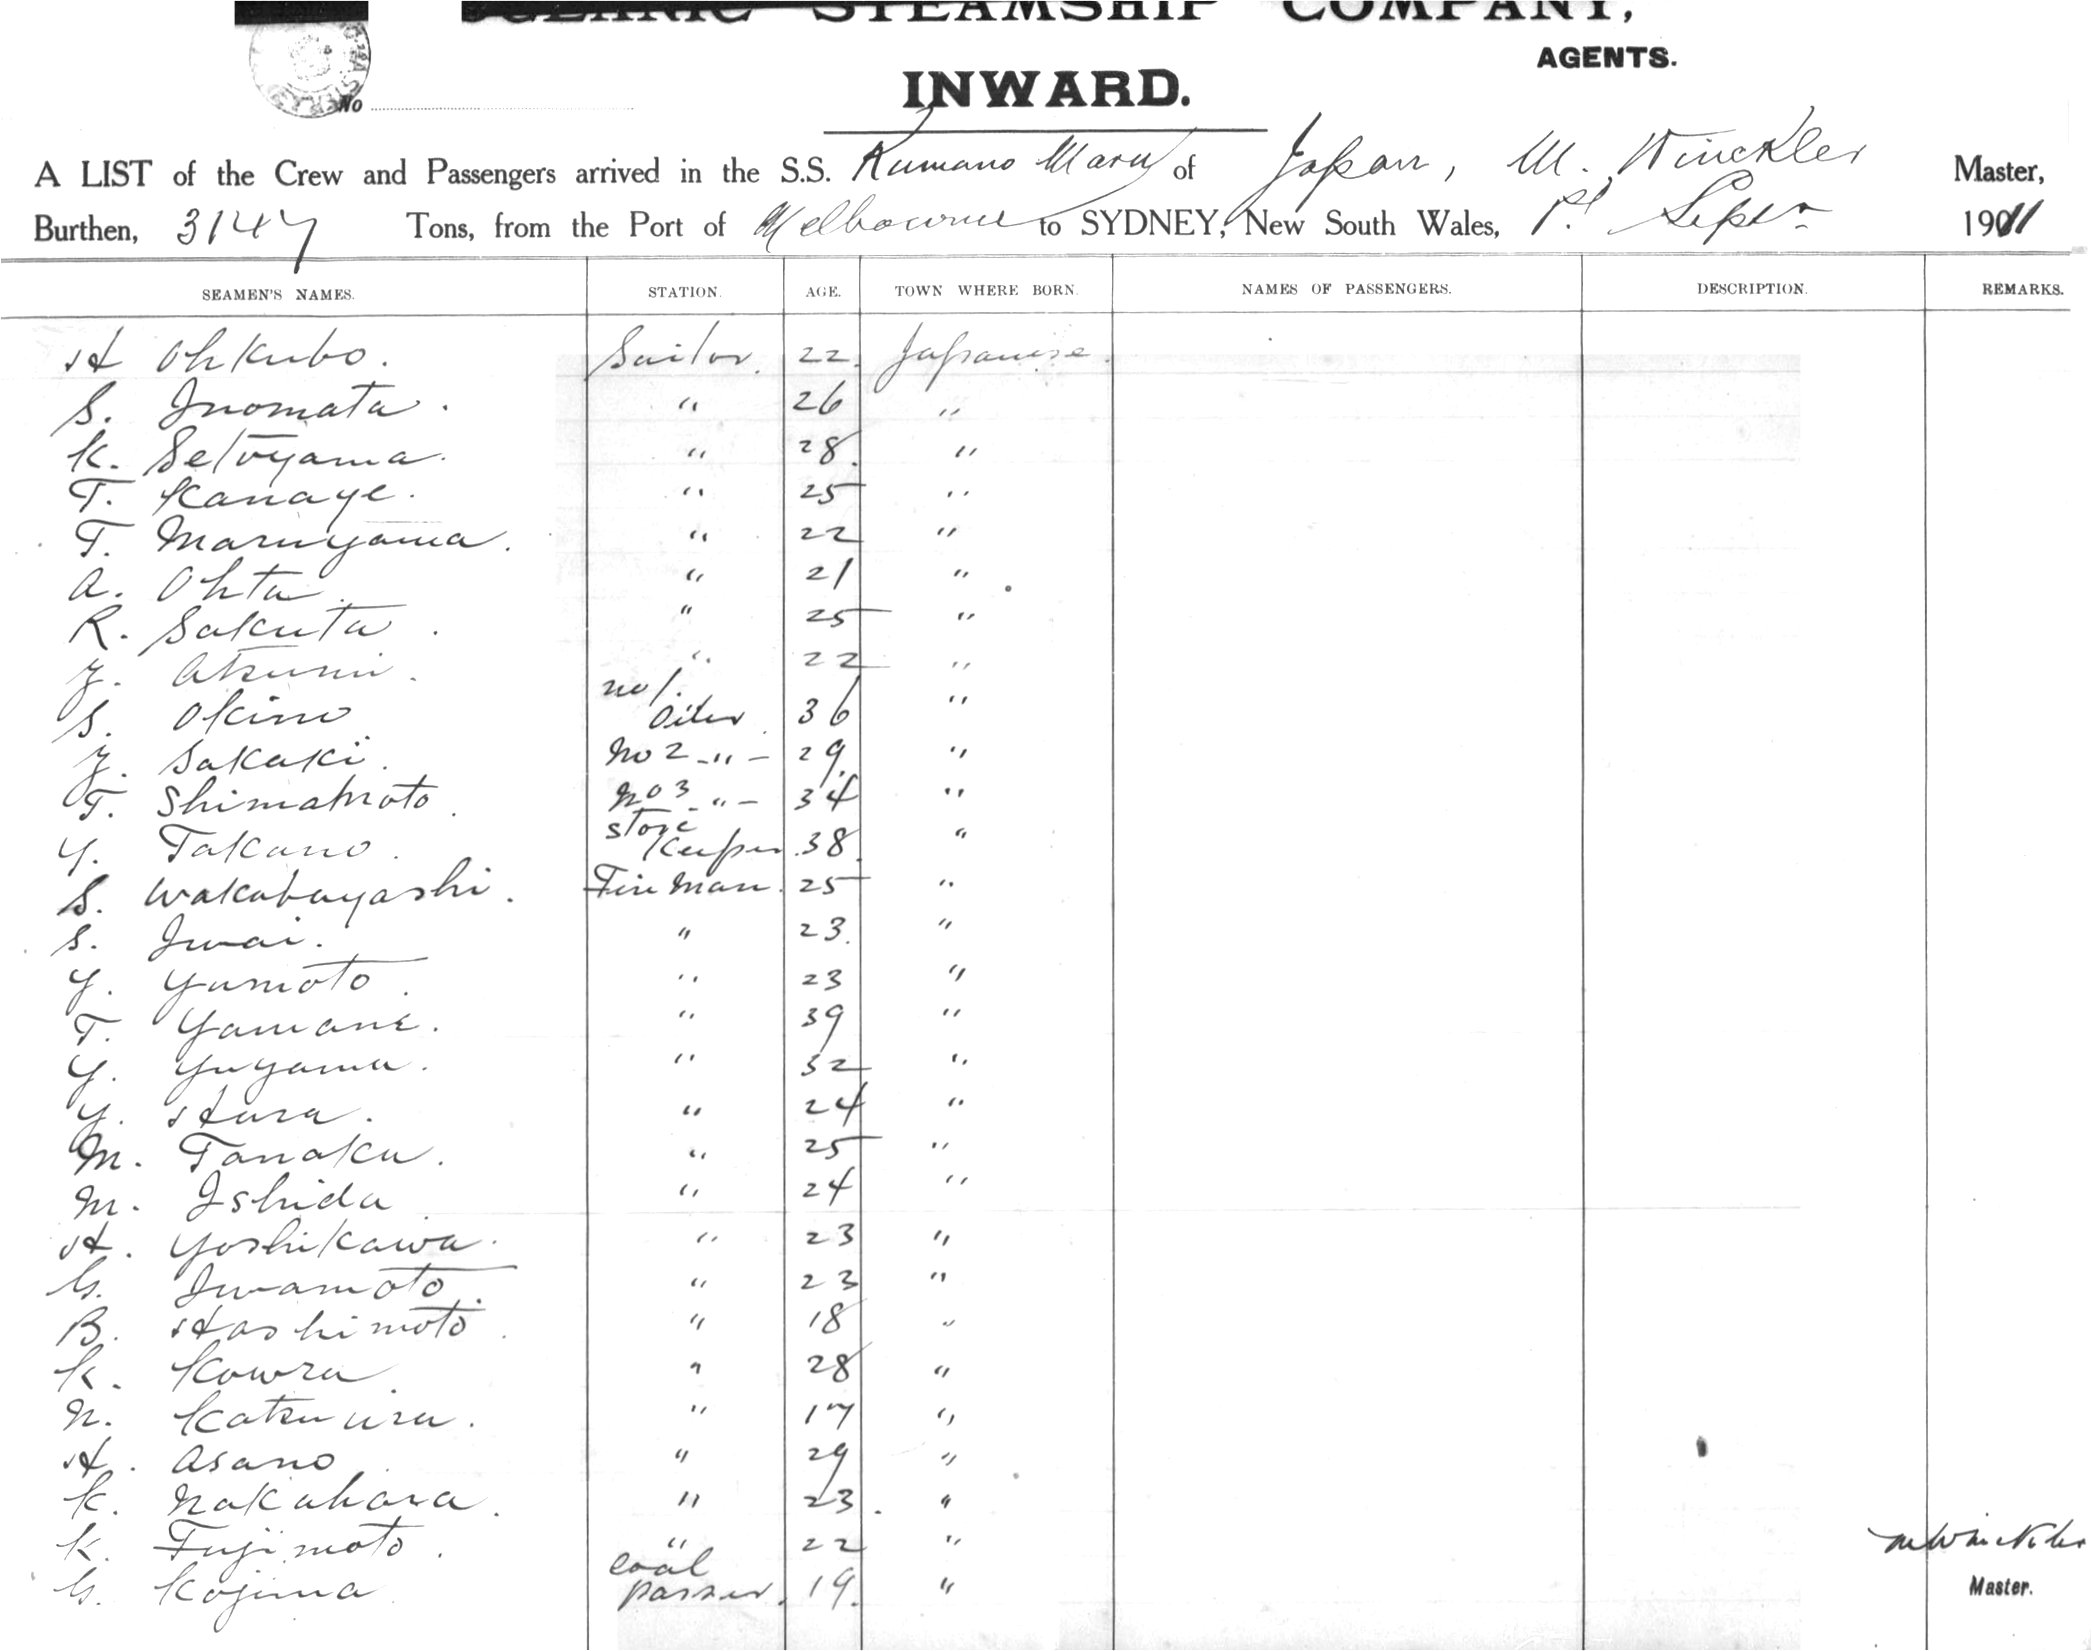 OCEANIC STEAMSHIP COMPANY,
AGENTS.
No
INWARD.
A LIST of the Crew and Passengers arrived in the S.S. Kumano Maru of Japan, M. Winckler Master,
Burthen, 3147 Tons, from the Port of Melbourne to SYDNEY, New South Wales, 1st Septr 1911
SEAMEN'S NAMES. STATION. AGE. TOWN WHERE BORN. NAMES OF PASSENGERS. DESCRIPTION. REMARKS.
H Ohkubo. Sailor. 22. Japanese.
S. Inomata. " 26 "
K. Setoyama. " 28. "
T. Kanaye. " 25 "
T. Maruyama. " 22 "
A. Ohta. " 21 "
R. Sakuta. " 25 "
Atsumi. " 22 "
S. Okino No 1. Oiler. 36 "
Sakaki. No 2 - " - 29. "
T. Shimamoto. No 3 - " - 34 "
Y. Takano. Store Keeper. 38. "
S. Wakabayashi. Fire Man. 25 "
S. Iwai. " 23. "
Y. Yumoto. " 23 "
T. Yamane. " 39 "
Y. Yuyama. " 32 "
Y. Hara. " 24 "
M. Tanaka. " 25 "
M. Ishida. " 24 "
H. Yoshikawa. " 23 "
G. Iwamoto. " 23 "
B. Hashimoto. " 18 "
K. Kowra. " 28 "
N. Katsuura. " 17 "
H. Asano. " 29 "
K. Nakahara. " 23. "
K. Fujimoto. " 22 "
G. Kojima. Coal passer. 19. "
M Winckler
Master.